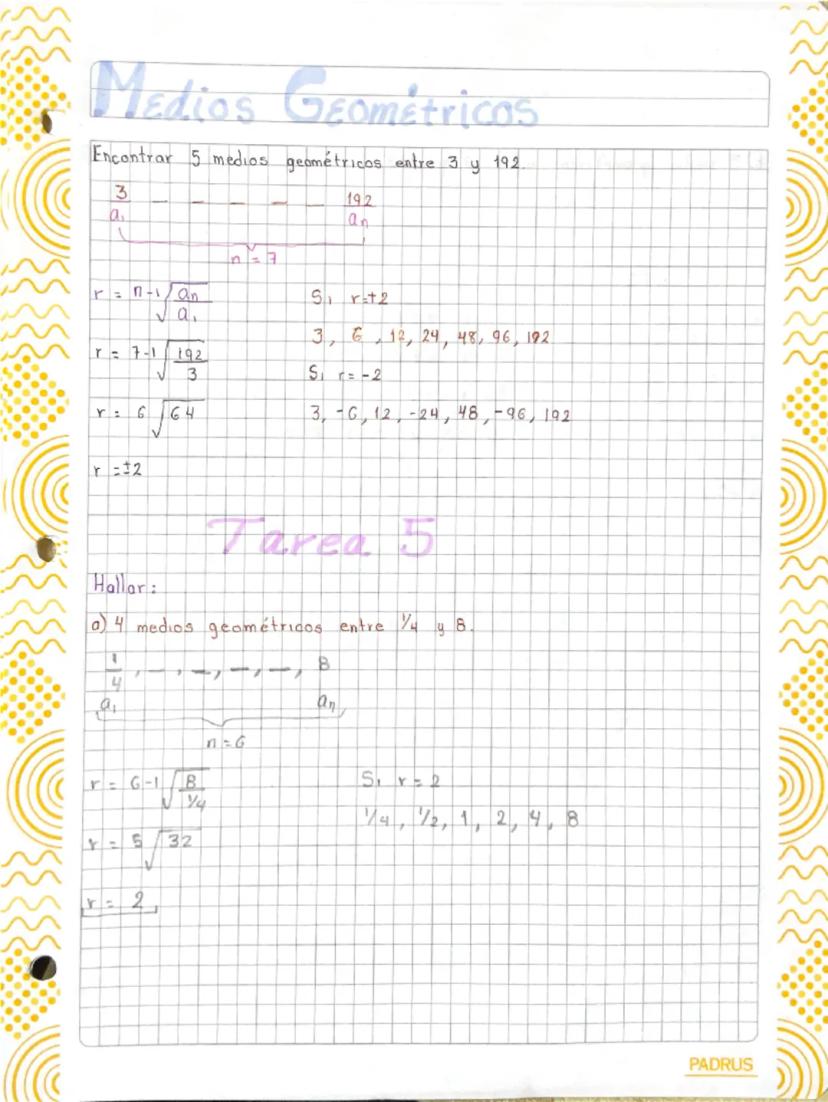 Medios Geométricos
Encontrar 5 medios geométricos entre 3 y 192.
3 _ _ _ _ _ 192
a₁ aₙ
n = 7
r = ⁿ⁻¹√(aₙ/a₁)
Si r=+2
3, 6, 12, 24, 48, 96, 192
r = ⁷⁻¹√(192/3)
Si r=-2
r = ⁶√64
3, -6, 12, -24, 48, -96, 192
r = ±2
Tarea 5
Hallar:
a) 4 medios geométricos entre 1/4 y 8.
1/4, _, _, _, _, 8
a₁ aₙ
n = 6
r = ⁶⁻¹√(8/(1/4))
Si r = 2
1/4, 1/2, 1, 2, 4, 8
r = ⁵√32
r = 2
PADRUS